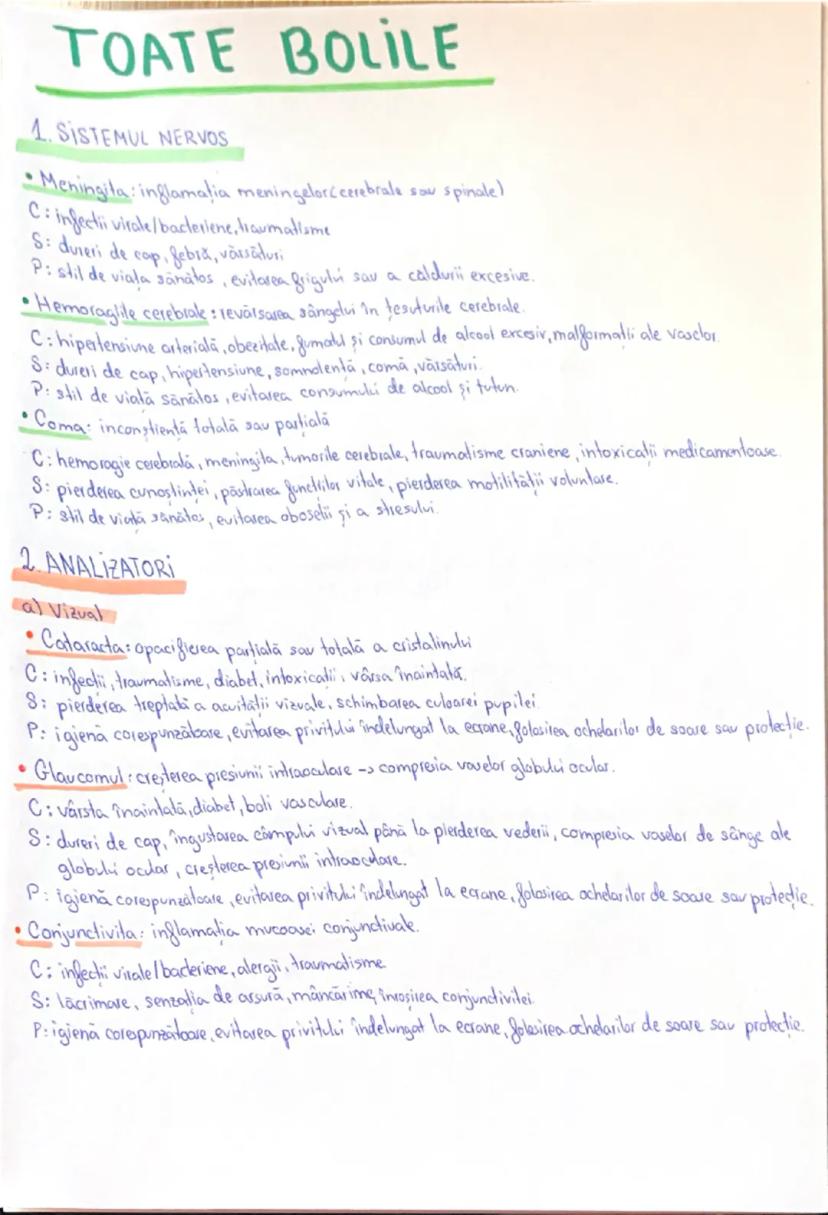 TOATE BOLILE
1. SISTEMUL NERVOS
• Meningita: inflamația meningelor (cerebrale sau spinale)
C: infectii virale/bacteriene, traumatisme
S: dureri de cap, febră, vărsături
P: stil de viața sănătos, evitarea frigului sau a căldurii excesive.
• Hemoragiile cerebrale: revărsarea sângelui în țesuturile cerebrale.
C: hipertensiune arterială, obezitate, fumatul și consumul de alcool excesiv, malformatii ale vaselor
S: dureri de cap, hipertensiune, somnolență, comă, vărsături.
P: stil de viață sănătos, evitarea consumului de alcool și tutun.
• Coma: inconștientă totală sau parțială
C: hemoragie cerebrală, meningita, tumorile cerebrale, traumatisme craniene, intoxicații medicamentoase.
S: pierderea cunoștintei, păstrarea functiilor vitale, pierderea motilității voluntare.
P: stil de viată sănătos, evitarea oboselii și a stresului.
2. ANALIZATORI
a) Vizual
• Cataracta: opacifierea parțială sau totală a cristalinului
C: infecții, traumatisme, diabet, intoxicatii, vârsa înaintată.
S: pierderea treptată a acuității vizuale, schimbarea culoarei pupilei.
P: igienă corespunzătoare, evitarea privitului îndelungat la ecrane, folosirea ochelarilor de soare sau protecție.
• Glaucomul: creșterea presiunii intraoculare -> compresia vaselor globului ocular.
C: vârsta înaintată, diabet, boli vasculare.
S: dureri de cap, îngustarea câmpului vizual până la pierderea vederii, compresia vaselor de sânge ale
globului ocular, creșterea presiunii intraoculare.
P: igienă corespunzătoare, evitarea privitului îndelungat la ecrane, folosirea ochelarilor de soare sau protecție.
• Conjunctivita: inflamația mucoasei conjunctivale.
C: infecții virale/bacteriene, alergii, traumatisme.
S: lăcrimare, senzația de arsură, mâncărime, înroșirea conjunctivitei.
P: igienă corespunzătoare, evitarea privitului îndelungat la ecrane, folosirea ochelarilor de soare sau protecție.